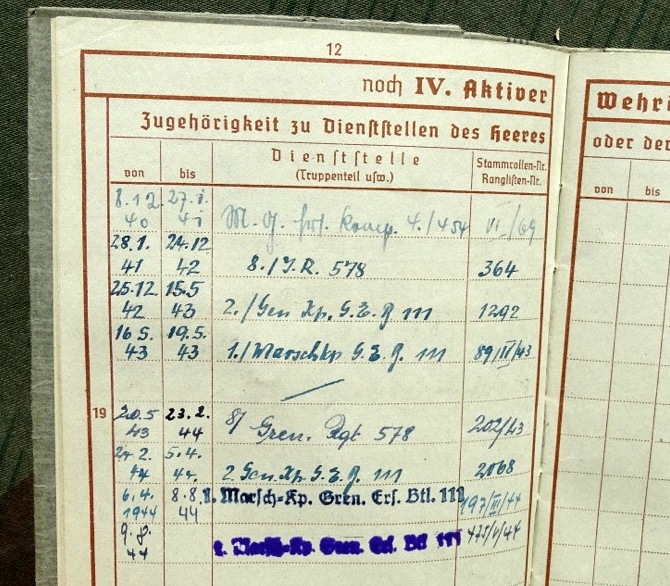 12
noch IV. Aktiver
Zugehörigkeit zu Dienststellen des Heeres
von bis Dienststelle (Truppenteil usw.) Stammrollen-Nr. Ranglisten-Nr.
8.12. 40 27.1. 41 M. G. Ers. Komp. 4./454 VI/69
28.1. 41 24.12 42 8./J.R. 578 364
25.12. 42 15.5 43 2./Gen Kp. G.E.B 111 1292
16 5. 43 19.5. 43 1./Marschkp G.E.B. 111 89/III/43
19 20.5 43 23.2. 44 8/ Gren. Rgt 578 202/43
24 2. 44 5.4. 44. 2. Gen. Kp. G.E.B. 111 2068
6.4. 1944 8.8. 44 1. Marsch-Kp. Gren. Ers. Btl. 111 197/III/44
9.8. 44 2. Marsch-Kp. Gren. Ers. Btl 111 475/V/44
Wehrd
oder der
von bis